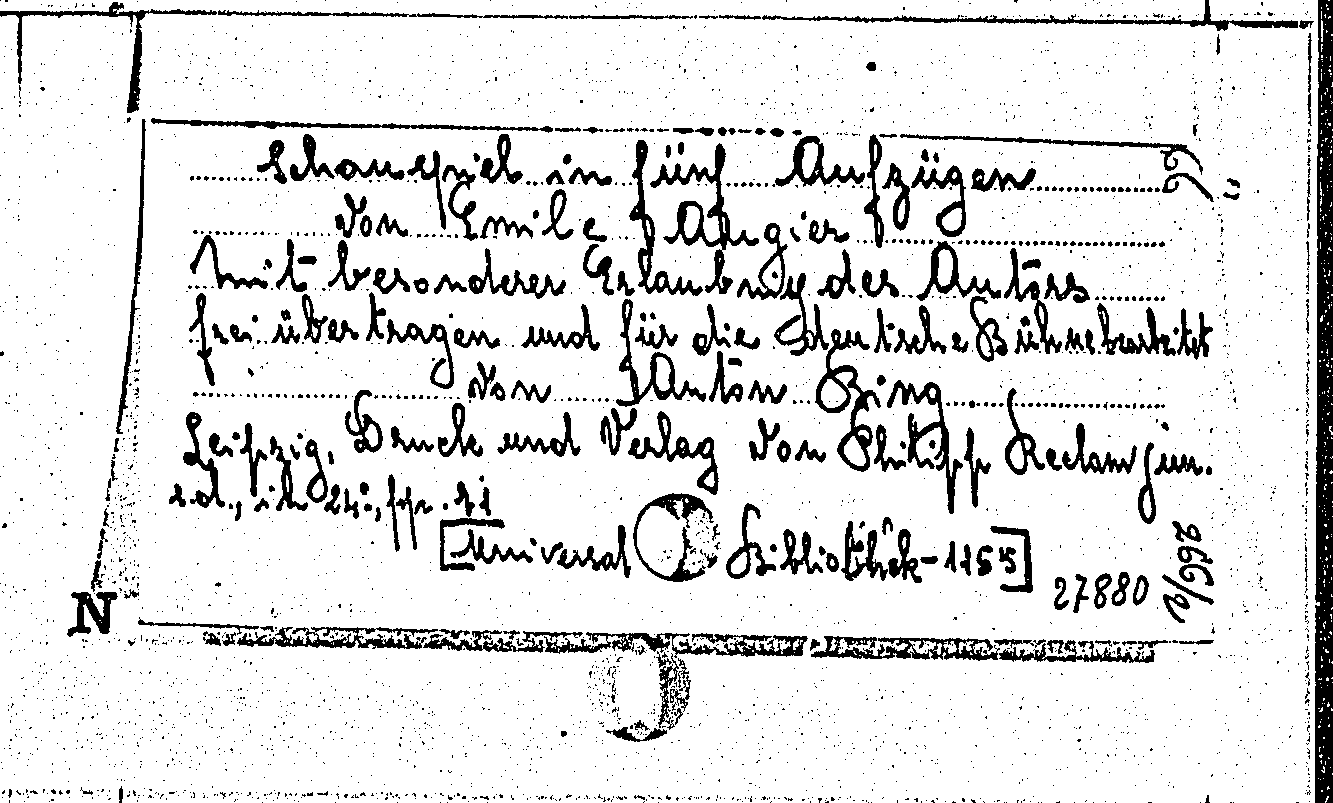 Schauspiel in fünf Aufzügen
von Emile Augier
Mit besonderer Erlaubniß des Autors
frei übertragen und für die deutsche Bühne bearbeitet
von Anton Bing
Leipzig, Druck und Verlag von Philipp Reclam jun.
s.d., in 24°, pp. 71
[Universal Bibliothek - 1155]
27880
N